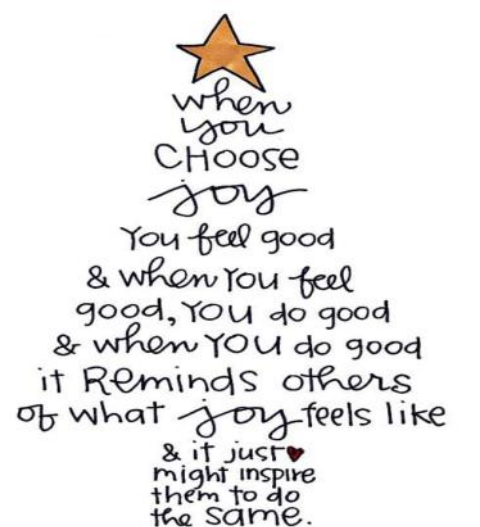 when
you
CHOOSE
joy
You feel good
& when You feel
good, You do good
& when YOU do good
it Reminds others
of what joy feels like
& it just
might inspire
them to do
the same.